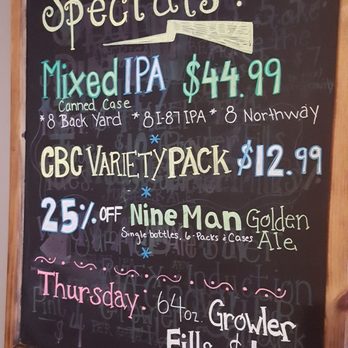 Specials!
Mixed IPA $44.99
Canned Case
*8 Back Yard *8 I-87 IPA *8 Northway
*
CBC VARIETY PACK $12.99
*
25% OFF Nine Man Golden Ale
Single bottles, 6-Packs & Cases
*
Thursday: 64oz. Growler
Fills